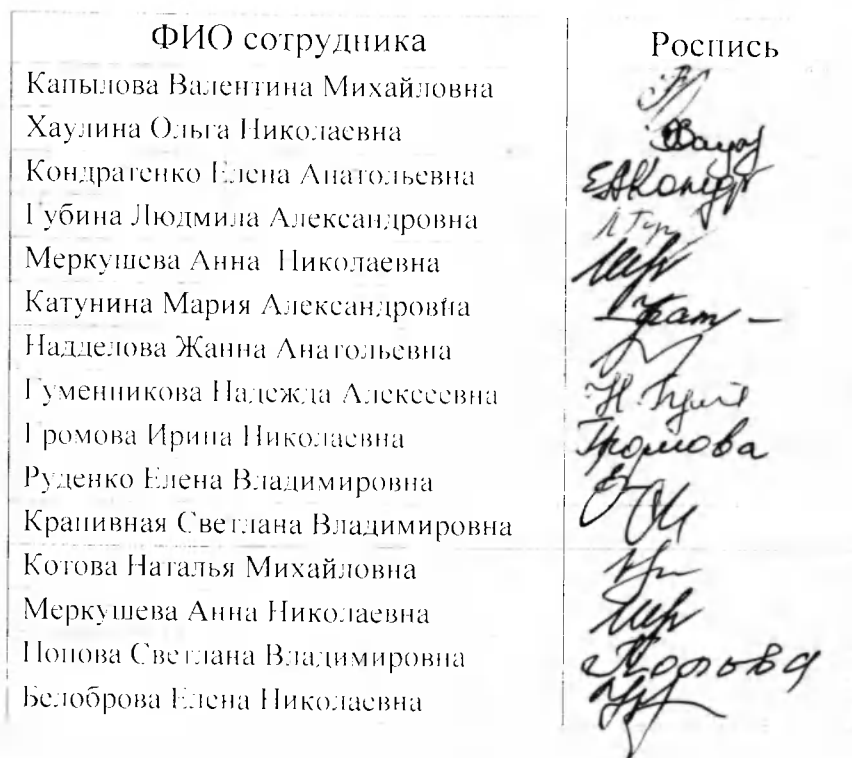 ФИО сотрудника Роспись
Капылова Валентина Михайловна
Хаулина Ольга Николаевна
Кондратенко Елена Анатольевна ЕАКондр
Губина Людмила Александровна
Меркушева Анна Николаевна Мер
Катунина Мария Александровна Кат
Надделова Жанна Анатольевна
Гуменникова Надежда Алексеевна Н. Гуме
Громова Ирина Николаевна Громова
Руденко Елена Владимировна
Крапивная Светлана Владимировна
Котова Наталья Михайловна
Меркушева Анна Николаевна Мер
Попова Светлана Владимировна Попова
Белоброва Елена Николаевна